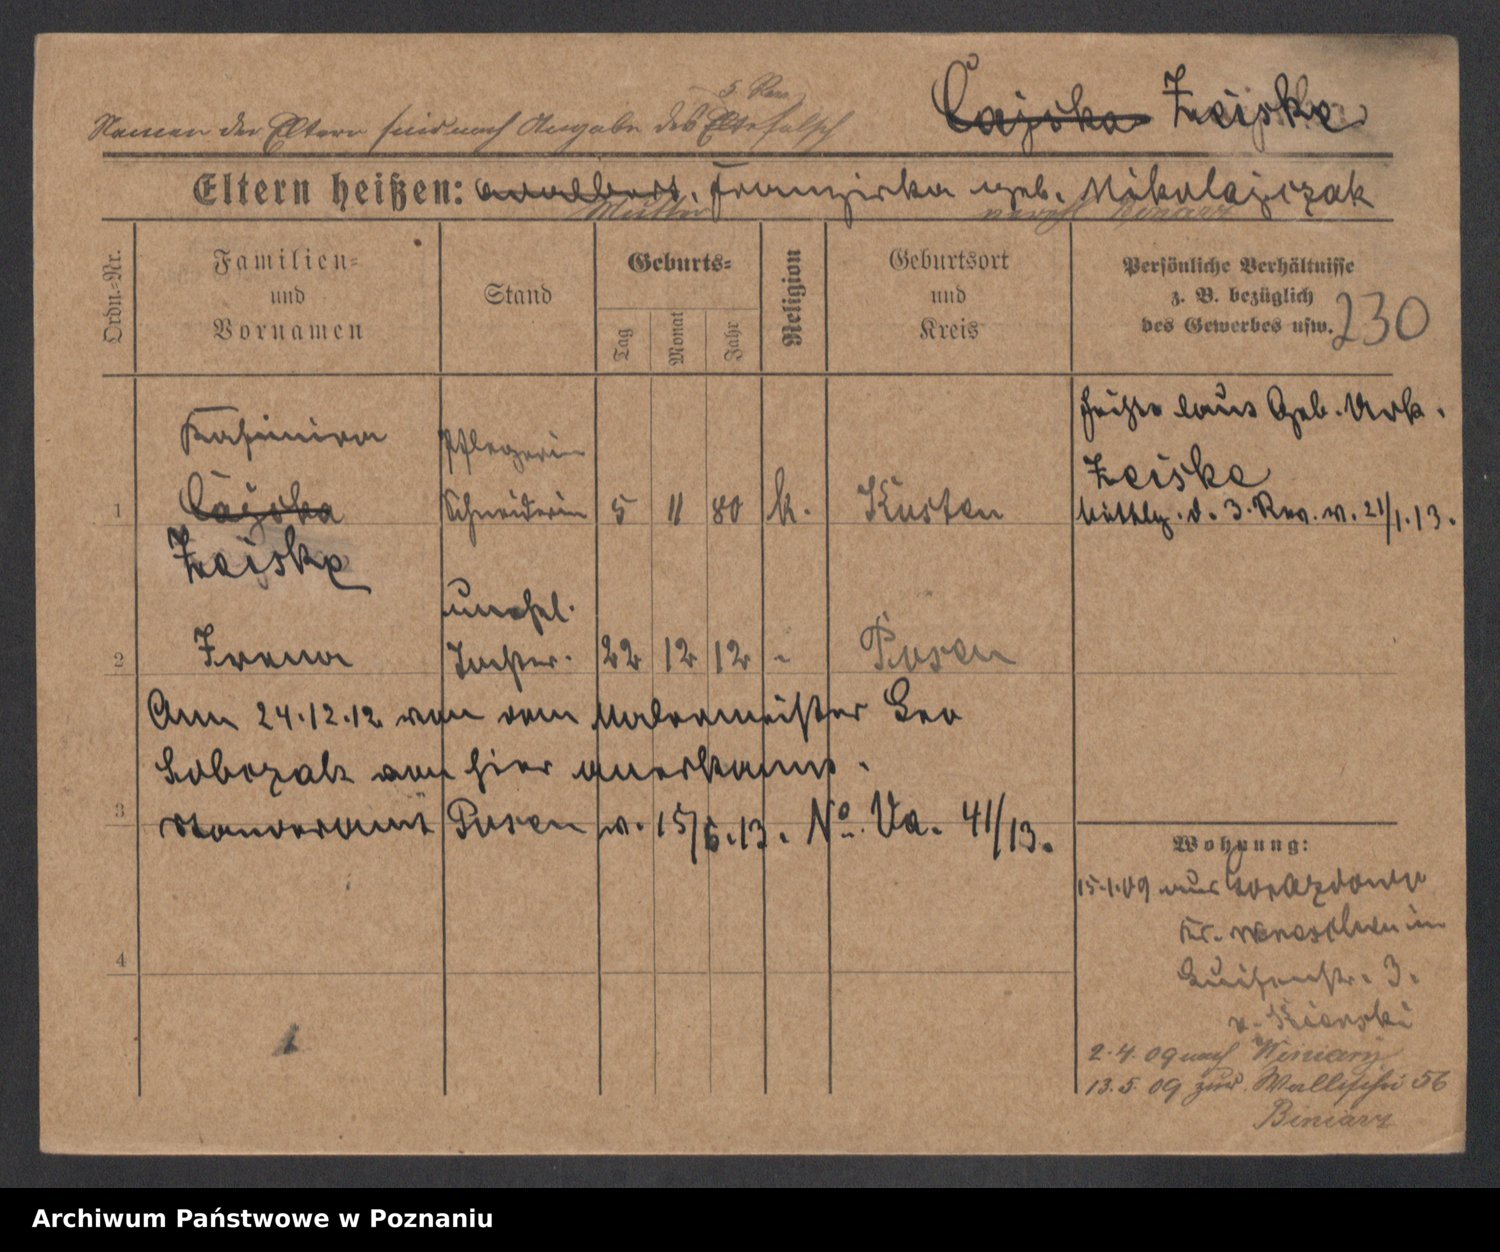 5. Rev.
Namen der Eltern sind nach Angabe des falsch
Cajska Zeiske
Eltern heißen: Franziska geb. Mikolajczak
Mutter Biniarz
Ordn.-Nr.
Familien-
und
Vornamen
Stand
Geburts-
Tag
Monat
Jahr
Religion
Geburtsort
und
Kreis
Persönliche Verhältnisse
z. B. bezüglich
des Gewerbes usw.
230
1
Kasimira
Cajska
Zeiske
Pflegerin
Schneiderin
5 11 80 k. Kosten
heißt laut Geb. Urk.
Zeiske
Mittlg. d. 3. Rev. v. 21/1.13.
2
Irena
unehel.
Tochter.
22 12 12 - Posen
Am 24.12.12 von dem Malermeister Leo
von hier anerkannt.
3
Standesamt Posen v. 15/6.13. No. Va. 41/13.
4
Wohnung:
15.1.09 aus
Kr. Wreschen in
Luisenstr. 3.
v.
2.4.09 nach Winiary
13.5.09 zur. Wallischei 56
Biniarz
Archiwum Państwowe w Poznaniu